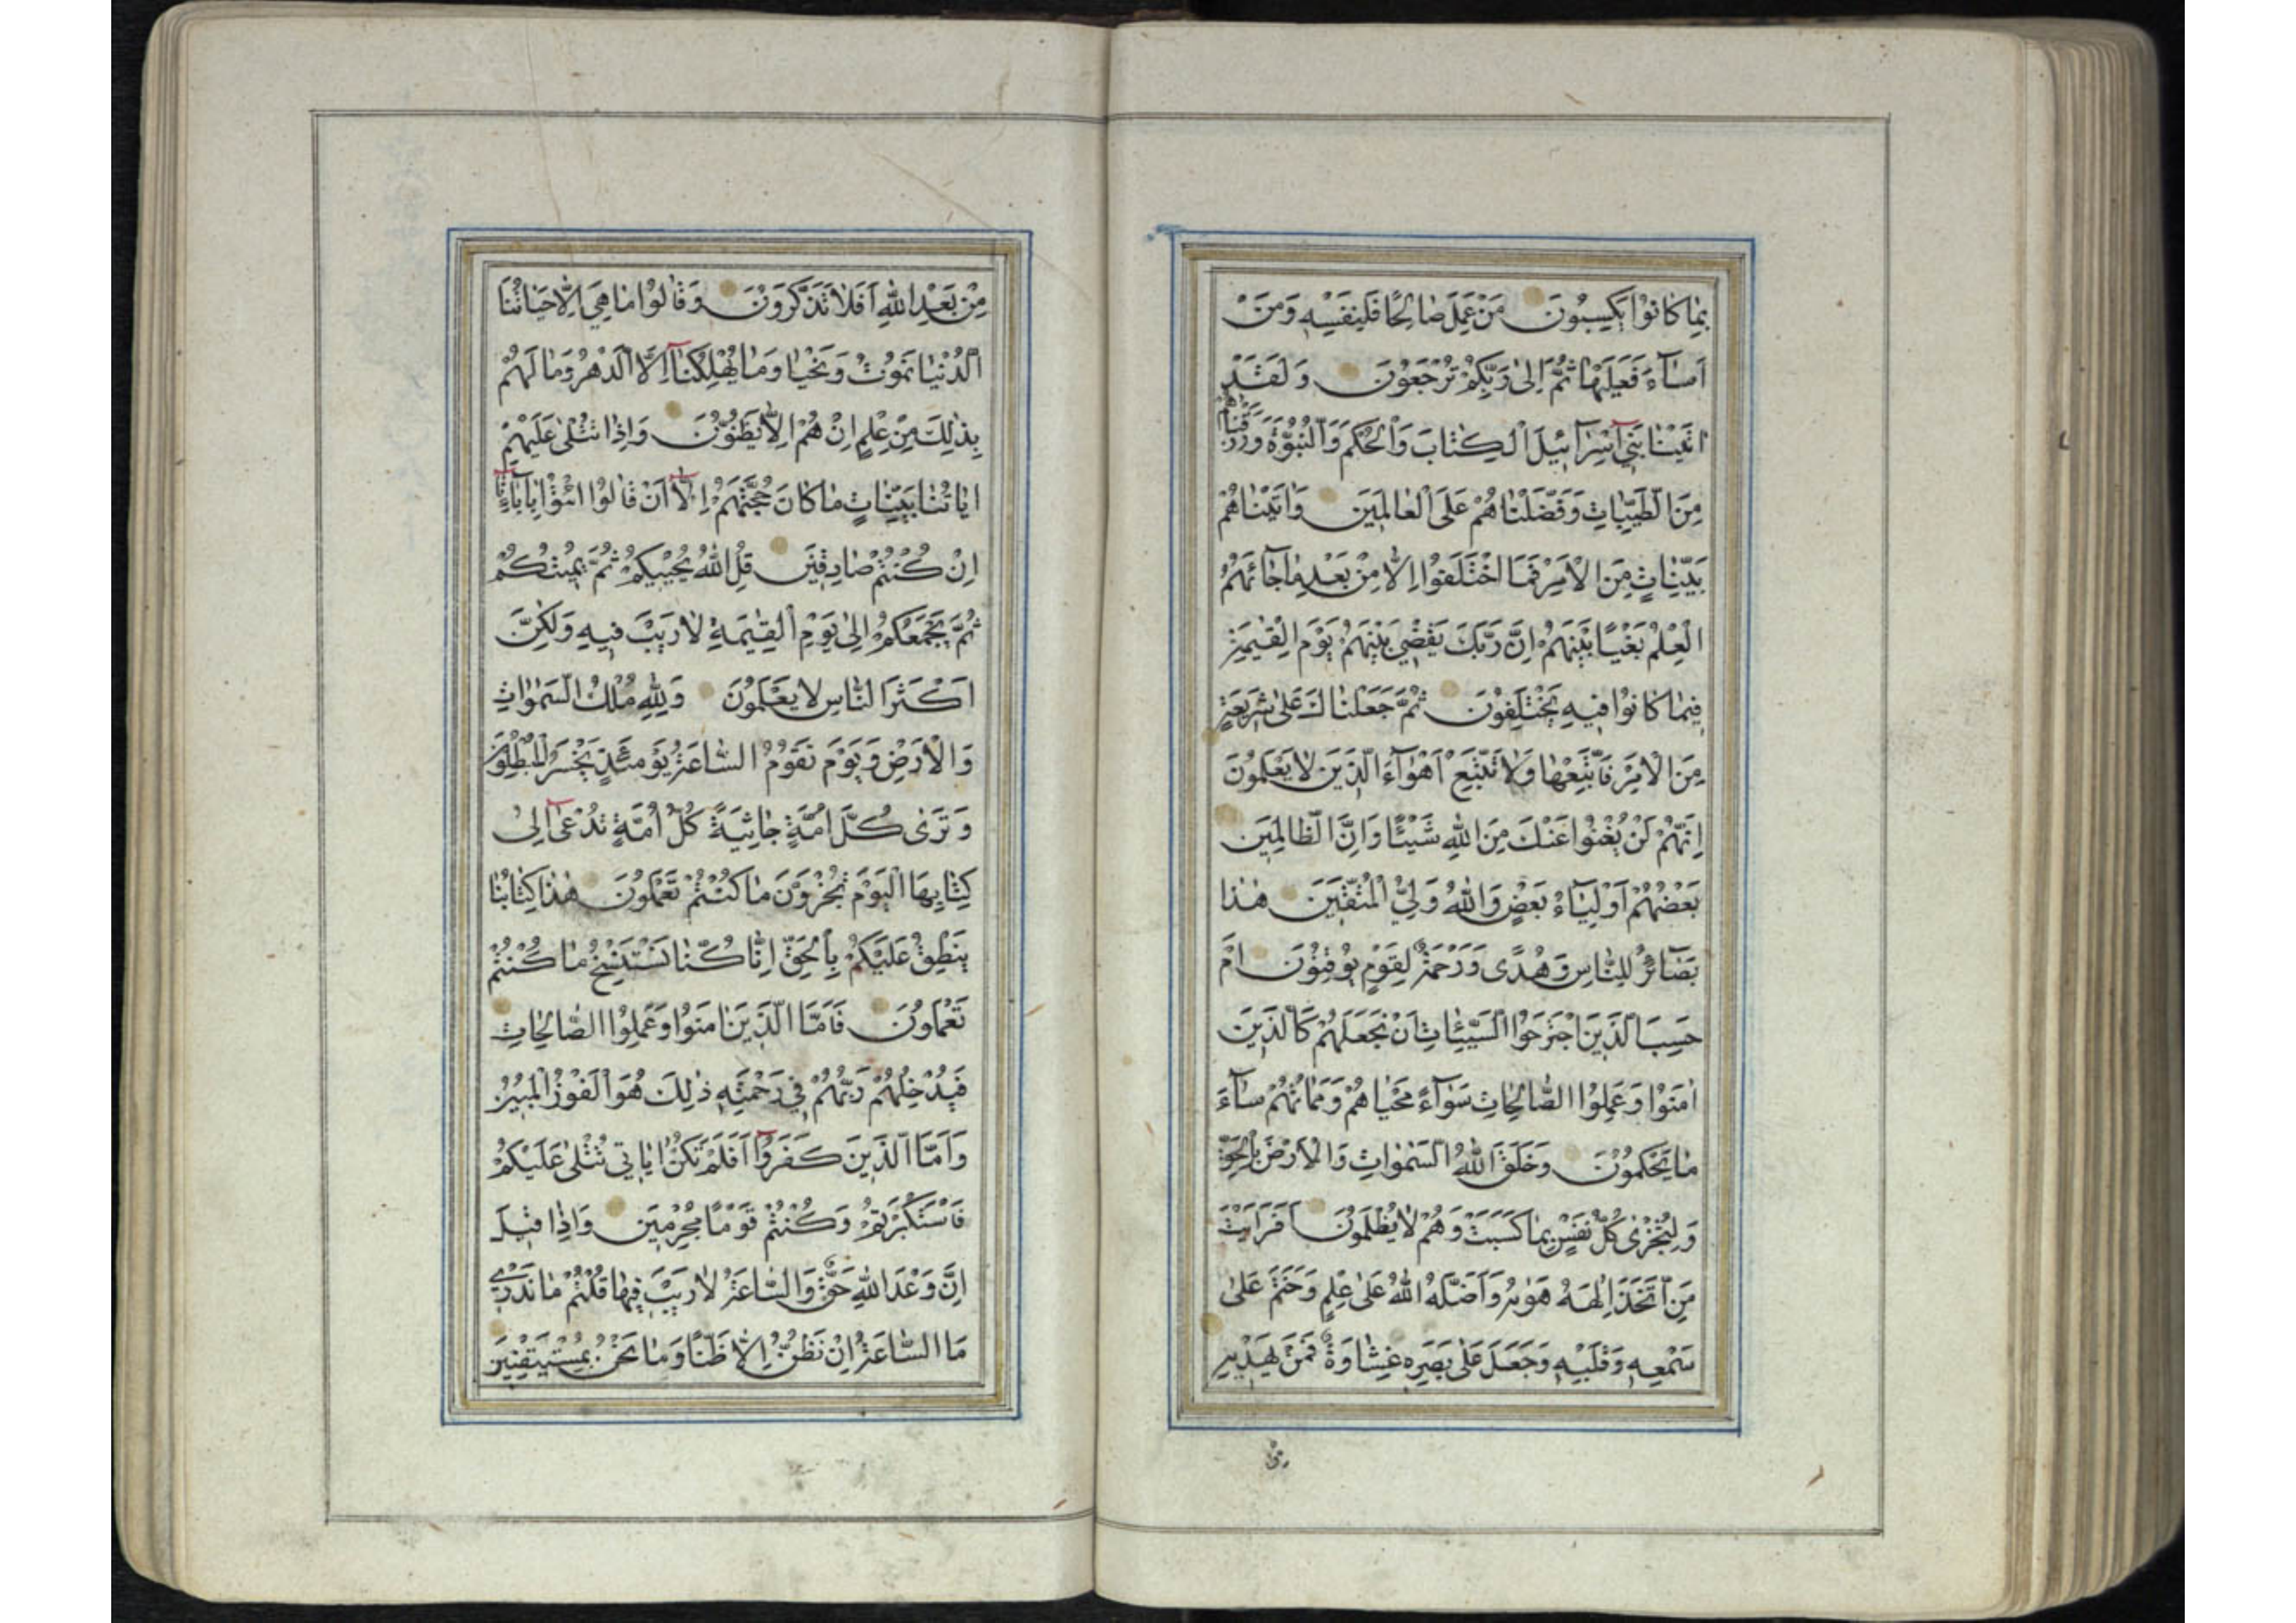 بِمَا كَانُوا يَكْسِبُونَ مَنْ عَمِلَ صَالِحًا فَلِنَفْسِهِ وَمَنْ
اَسَآءَ فَعَلَيْهَا ثُمَّ اِلٰى رَبِّكُمْ تُرْجَعُونَ وَلَقَدْ
اتَيْنَا بَنِيٓ اِسْرَآئِيلَ الْكِتَابَ وَالْحُكْمَ وَالنُّبُوَّةَ وَرَزَقْنَاهُمْ
مِنَ الطَّيِّبَاتِ وَفَضَّلْنَاهُمْ عَلَى الْعَالَمِينَ وَاتَيْنَاهُمْ
بَيِّنَاتٍ مِنَ الْاَمْرِ فَمَا اخْتَلَفُوا اِلَّا مِنْ بَعْدِ مَا جَآئَهُمُ
الْعِلْمُ بَغْيًا بَيْنَهُمْ اِنَّ رَبَّكَ يَقْضِي بَيْنَهُمْ يَوْمَ الْقِيٰمَةِ
فِيمَا كَانُوا فِيهِ يَخْتَلِفُونَ ثُمَّ جَعَلْنَاكَ عَلٰى شَرِيعَةٍ
مِنَ الْاَمْرِ فَاتَّبِعْهَا وَلَا تَتَّبِعْ اَهْوَآءَ الَّذِينَ لَا يَعْلَمُونَ
اِنَّهُمْ لَنْ يُغْنُوا عَنْكَ مِنَ اللّٰهِ شَيْئًا وَاِنَّ الظَّالِمِينَ
بَعْضُهُمْ اَوْلِيَآءُ بَعْضٍ وَاللّٰهُ وَلِيُّ الْمُتَّقِينَ هٰذَا
بَصَآئِرُ لِلنَّاسِ وَهُدًى وَرَحْمَةٌ لِقَوْمٍ يُوقِنُونَ اَمْ
حَسِبَ الَّذِينَ اجْتَرَحُوا السَّيِّئَاتِ اَنْ نَجْعَلَهُمْ كَالَّذِينَ
اٰمَنُوا وَعَمِلُوا الصَّالِحَاتِ سَوَآءً مَحْيَاهُمْ وَمَمَاتُهُمْ سَآءَ
مَا يَحْكُمُونَ وَخَلَقَ اللّٰهُ السَّمٰوَاتِ وَالْاَرْضَ بِالْحَقِّ
وَلِتُجْزٰى كُلُّ نَفْسٍ بِمَا كَسَبَتْ وَهُمْ لَا يُظْلَمُونَ اَفَرَاَيْتَ
مَنِ اتَّخَذَ اِلٰهَهُ هَوٰيهُ وَاَضَلَّهُ اللّٰهُ عَلٰى عِلْمٍ وَخَتَمَ عَلٰى
سَمْعِهِ وَقَلْبِهِ وَجَعَلَ عَلٰى بَصَرِهِ غِشَاوَةً فَمَنْ يَهْدِيهِ
مِنْ
مِنْ بَعْدِ اللّٰهِ اَفَلَا تَذَكَّرُونَ وَقَالُوا مَا هِيَ اِلَّا حَيَاتُنَا
الدُّنْيَا نَمُوتُ وَنَحْيَا وَمَا يُهْلِكُنَآ اِلَّا الدَّهْرُ وَمَا لَهُمْ
بِذٰلِكَ مِنْ عِلْمٍ اِنْ هُمْ اِلَّا يَظُنُّونَ وَاِذَا تُتْلٰى عَلَيْهِمْ
ايَاتُنَا بَيِّنَاتٍ مَا كَانَ حُجَّتَهُمْ اِلَّآ اَنْ قَالُوا ائْتُوا بِاٰبَآئِنَا
اِنْ كُنْتُمْ صَادِقِينَ قُلِ اللّٰهُ يُحْيِيكُمْ ثُمَّ يُمِيتُكُمْ
ثُمَّ يَجْمَعُكُمْ اِلٰى يَوْمِ الْقِيٰمَةِ لَا رَيْبَ فِيهِ وَلٰكِنَّ
اَكْثَرَ النَّاسِ لَا يَعْلَمُونَ وَلِلّٰهِ مُلْكُ السَّمٰوَاتِ
وَالْاَرْضِ وَيَوْمَ تَقُومُ السَّاعَةُ يَوْمَئِذٍ يَخْسَرُ الْمُبْطِلُونَ
وَتَرٰى كُلَّ اُمَّةٍ جَاثِيَةً كُلُّ اُمَّةٍ تُدْعٰىٓ اِلٰى
كِتَابِهَا الْيَوْمَ تُجْزَوْنَ مَا كُنْتُمْ تَعْمَلُونَ هٰذَا كِتَابُنَا
يَنْطِقُ عَلَيْكُمْ بِالْحَقِّ اِنَّا كُنَّا نَسْتَنْسِخُ مَا كُنْتُمْ
تَعْمَلُونَ فَاَمَّا الَّذِينَ اٰمَنُوا وَعَمِلُوا الصَّالِحَاتِ
فَيُدْخِلُهُمْ رَبُّهُمْ فِي رَحْمَتِهِ ذٰلِكَ هُوَ الْفَوْزُ الْمُبِينُ
وَاَمَّا الَّذِينَ كَفَرُوٓا اَفَلَمْ تَكُنْ اٰيَاتِي تُتْلٰى عَلَيْكُمْ
فَاسْتَكْبَرْتُمْ وَكُنْتُمْ قَوْمًا مُجْرِمِينَ وَاِذَا قِيلَ
اِنَّ وَعْدَ اللّٰهِ حَقٌّ وَالسَّاعَةُ لَا رَيْبَ فِيهَا قُلْتُمْ مَا نَدْرِي
مَا السَّاعَةُ اِنْ نَظُنُّ اِلَّا ظَنًّا وَمَا نَحْنُ بِمُسْتَيْقِنِينَ